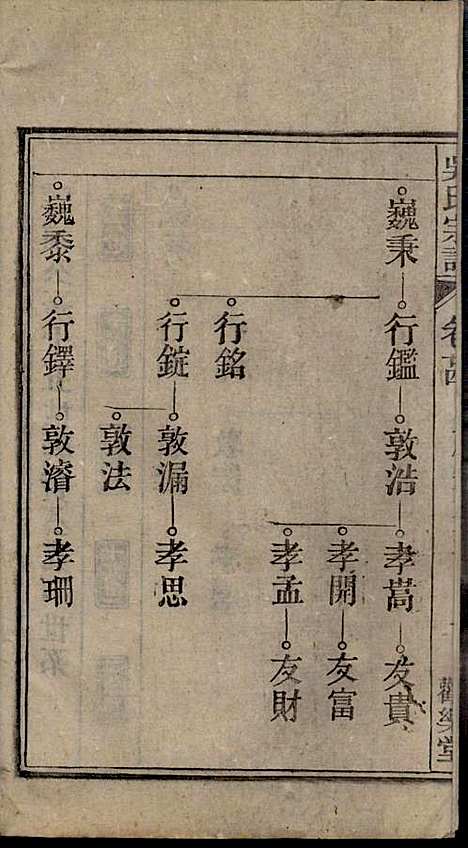 吳氏宗譜
卷十四
觀樂堂
巍秉 行鑑 敦浩 孝嵩 友貴
孝開 友富
孝孟 友財
行銘
行錠 敦漏 孝思
敦法
巍黍 行鐸 敦濬 孝珊